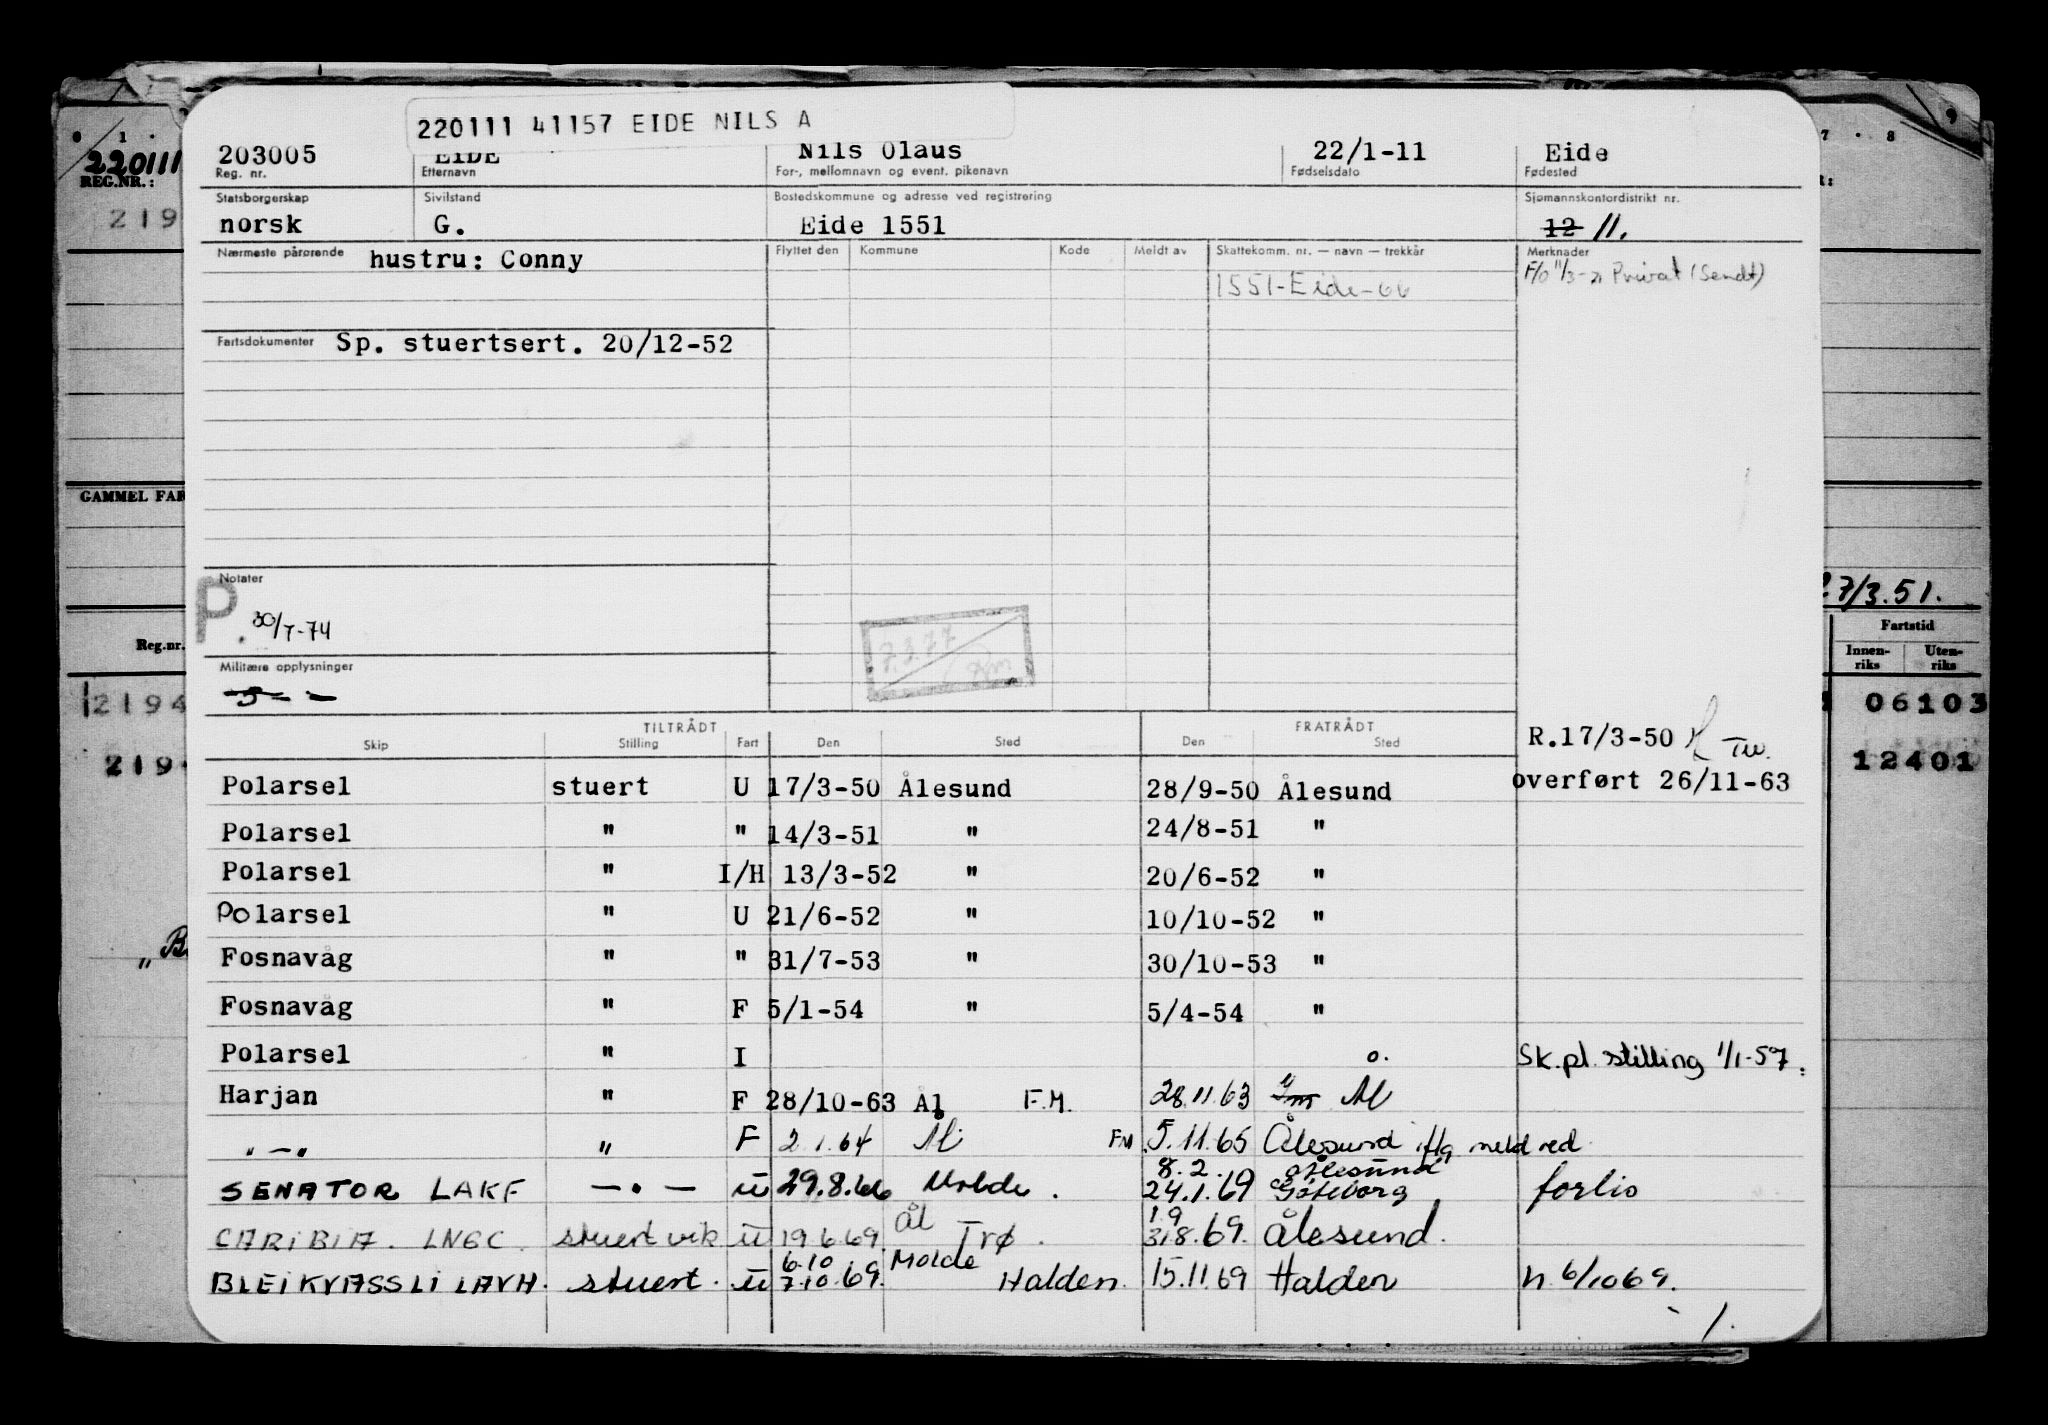 220111 41157 EIDE NILS A
203005 EIDE Nils Olaus 22/1-11 Eide
Reg. nr. Etternavn For-, mellomnavn og event. pikenavn Fødselsdato Fødested
220111
REG.NR.:
219
Statsborgerskap Sivilstand Bostedskommune og adresse ved registrering Sjømannskontordistrikt nr.
norsk G. Eide 1551 12 11.
Nærmeste pårørende hustru: Conny Flyttet den Kommune Kode Meldt av Skattekomm. nr. — navn — trekkår Merknader
1551-Eide-66 Privat (Sendt)
Fartsdokumenter Sp. stuertsert. 20/12-52
GAMMEL FAR
Notater
P. 30/7-74
27/3.51.
7.3.77
Reg.nr.
Fartstid
Innenriks Utenriks
Militære opplysninger
2194 06103
TILTRÅDT FRATRÅDT
Skip Stilling Fart Den Sted Den Sted
R.17/3-50
219 12401
Polarsel stuert U 17/3-50 Ålesund 28/9-50 Ålesund overført 26/11-63
Polarsel " " 14/3-51 " 24/8-51 "
Polarsel " I/H 13/3-52 " 20/6-52 "
Polarsel " U 21/6-52 " 10/10-52 "
Fosnavåg " " 31/7-53 " 30/10-53 "
Fosnavåg " F 5/1-54 " 5/4-54 "
Polarsel " I o. Sk.pl. stilling 1/1-57
Harjan " F 28/10-63 Ål F.M. 28.11.63 Ål
" — " " F 2.1.64 Ål FM 5.11.65 Ålesund iflg meld red
8.2. Ålesund
SENATOR LAKF — " — U 29.8.66 Molde. 24.1.69 Göteborg forlis
Ål 1.9
CARIBIA. LNGC. stuert vik U 19.6.69 Trø. 31.8.69. Ålesund.
6.10 Molde
BLEIKVASSLI LAVH. stuert. U 7.10.69. Halden. 15.11.69 Halden n. 6/10 69.
1.